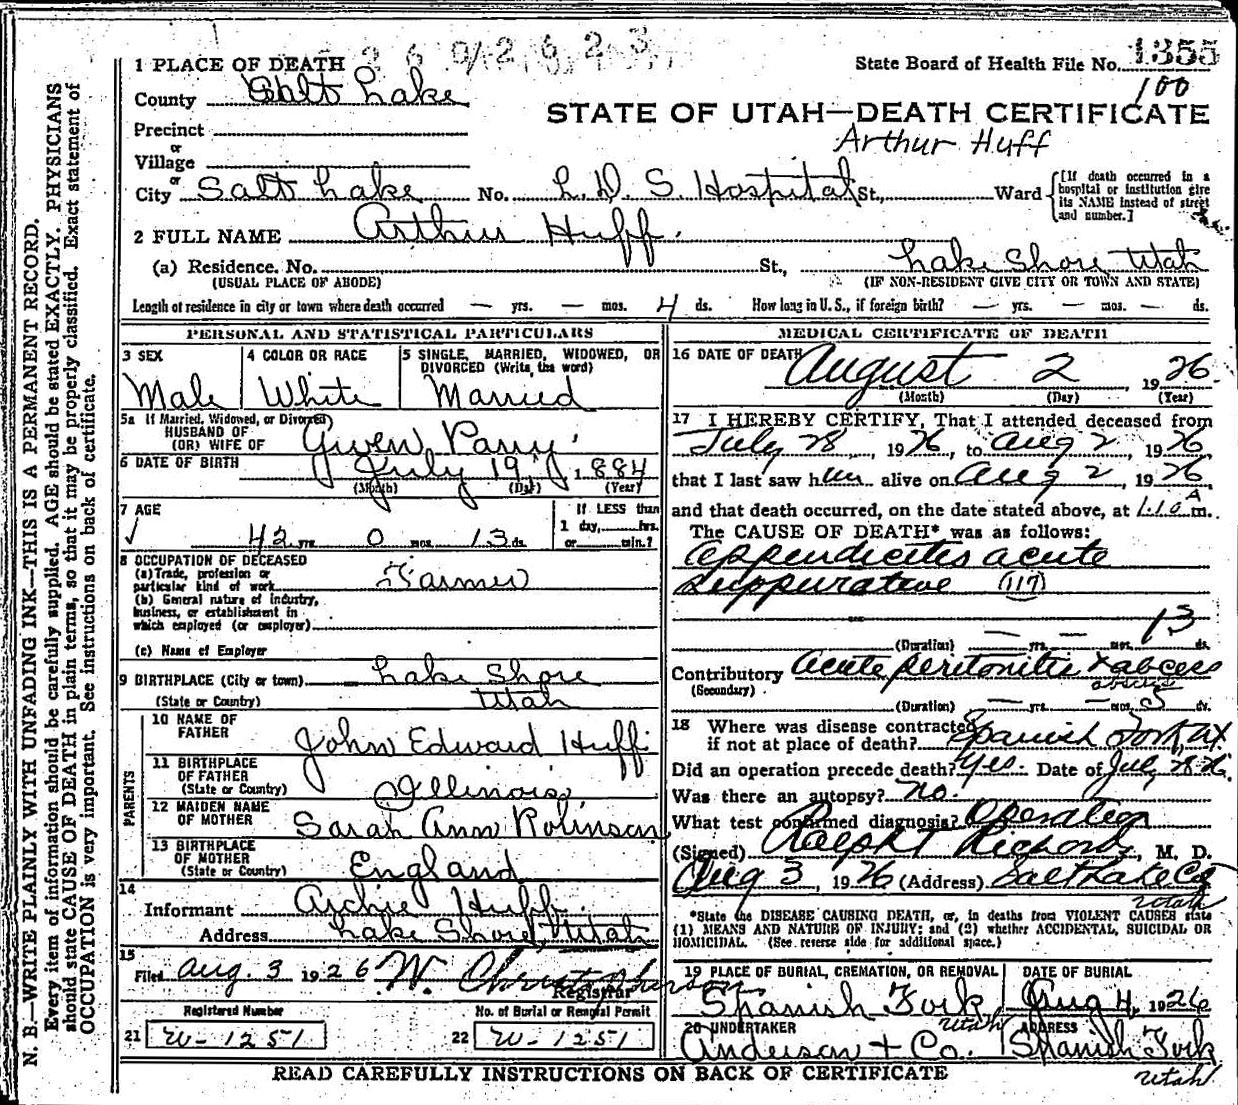 1 PLACE OF DEATH
State Board of Health File No. 1355
County Salt Lake
100
STATE OF UTAH—DEATH CERTIFICATE
Arthur Huff
Precinct
or
Village
or
City Salt Lake No. L. D. S. Hospital St., Ward
[If death occurred in a hospital or institution give its NAME instead of street and number.]
2 FULL NAME Arthur Huff.
(a) Residence. No. St., Lake Shore Utah
(USUAL PLACE OF ABODE) (IF NON-RESIDENT GIVE CITY OR TOWN AND STATE)
Length of residence in city or town where death occurred — yrs. — mos. 4 ds. How long in U. S., if foreign birth? — yrs. — mos. — ds.
PERSONAL AND STATISTICAL PARTICULARS
3 SEX
Male
4 COLOR OR RACE
White
5 SINGLE, MARRIED, WIDOWED, OR DIVORCED (Write, the word)
Married
5a If Married, Widowed, or Divorced
HUSBAND OF
(OR) WIFE OF Gwen Parry
6 DATE OF BIRTH July 19 1884
(Month) (Day) (Year)
7 AGE
42 yrs 0 mos. 13 ds.
If LESS than
1 day, hrs.
or min.?
8 OCCUPATION OF DECEASED
(a) Trade, profession or
particular kind of work Farmer
(b) General nature of industry,
business, or establishment in
which employed (or employer)
(c) Name of Employer
9 BIRTHPLACE (City or town) Lake Shore
(State or Country) Utah
PARENTS
10 NAME OF
FATHER John Edward Huff
11 BIRTHPLACE
OF FATHER
(State or Country) Illinois
12 MAIDEN NAME
OF MOTHER Sarah Ann Robinson
13 BIRTHPLACE
OF MOTHER
(State or Country) England
14
Informant Archie Huff.
Address Lake Shore, Utah
15
Filed Aug. 3 1926 W. Christopherson
Registrar
Registered Number No. of Burial or Removal Permit
21 W-1251 22 W-1251
MEDICAL CERTIFICATE OF DEATH
16 DATE OF DEATH August 2, 1926
(Month) (Day) (Year)
17 I HEREBY CERTIFY, That I attended deceased from
July 28, 1926, to Aug 2, 1926
that I last saw him alive on Aug 2, 1926
and that death occurred, on the date stated above, at 1:10 A m.
The CAUSE OF DEATH* was as follows:
Appendicitis acute
suppurative (117)
(Duration) — yrs. — mos. 13 ds.
Contributory Acute peritonitis & abcess
(Secondary)
(Duration) — yrs. — mos. 5 ds.
18 Where was disease contracted
if not at place of death? Spanish Fork, Ut
Did an operation precede death? Yes. Date of July 28 26
Was there an autopsy? No.
What test confirmed diagnosis? Operation
(Signed) Ralph T Richards, M. D.
Aug 3, 1926 (Address) Salt Lake Cy
Utah
*State the DISEASE CAUSING DEATH, or, in deaths from VIOLENT CAUSES state
(1) MEANS AND NATURE OF INJURY; and (2) whether ACCIDENTAL, SUICIDAL OR
HOMICIDAL. (See reverse side for additional space.)
19 PLACE OF BURIAL, CREMATION, OR REMOVAL
Spanish Fork
Utah
DATE OF BURIAL
Aug 4, 1926
20 UNDERTAKER
Anderson & Co.
ADDRESS
Spanish Fork
Utah
READ CAREFULLY INSTRUCTIONS ON BACK OF CERTIFICATE
N. B.—WRITE PLAINLY WITH UNFADING INK—THIS IS A PERMANENT RECORD.
Every item of information should be carefully supplied. AGE should be stated EXACTLY. PHYSICIANS
should state CAUSE OF DEATH in plain terms, so that it may be properly classified. Exact statement of
OCCUPATION is very important. See instructions on back of certificate.